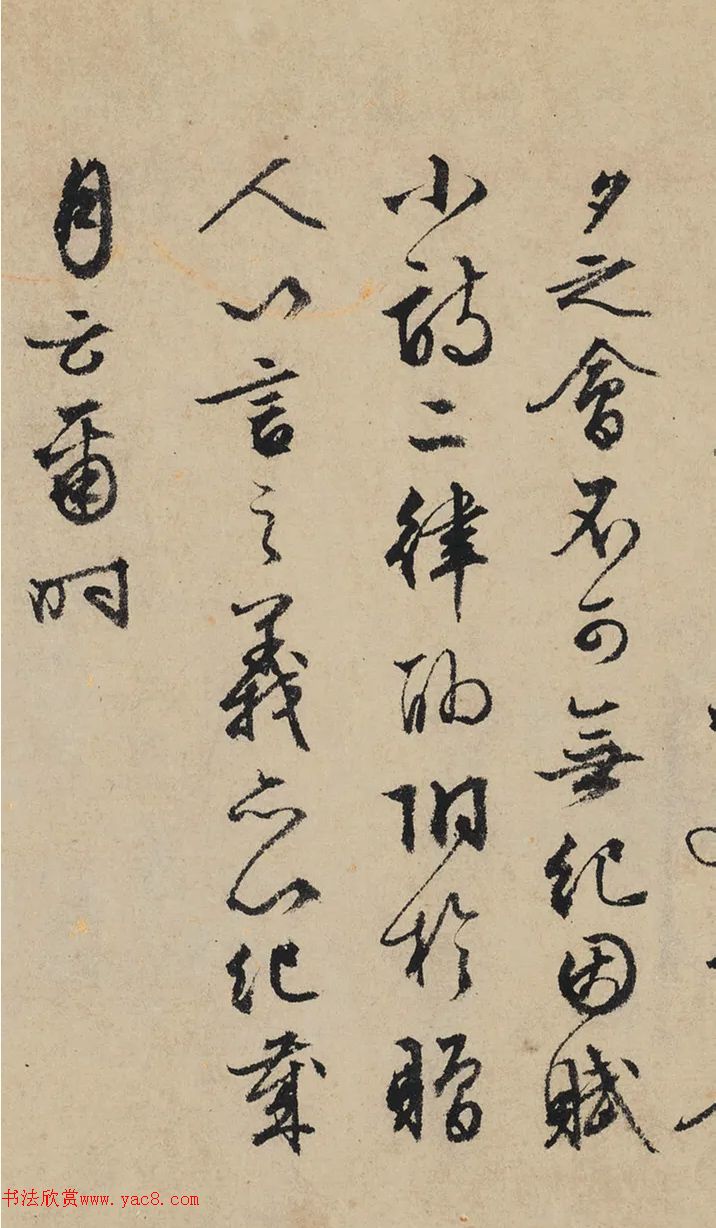 夕之會不可無紀因賦
小詩二律聊附於贈
人以言之義亦以紀歲
月云爾時
书法欣赏www.yac8.com